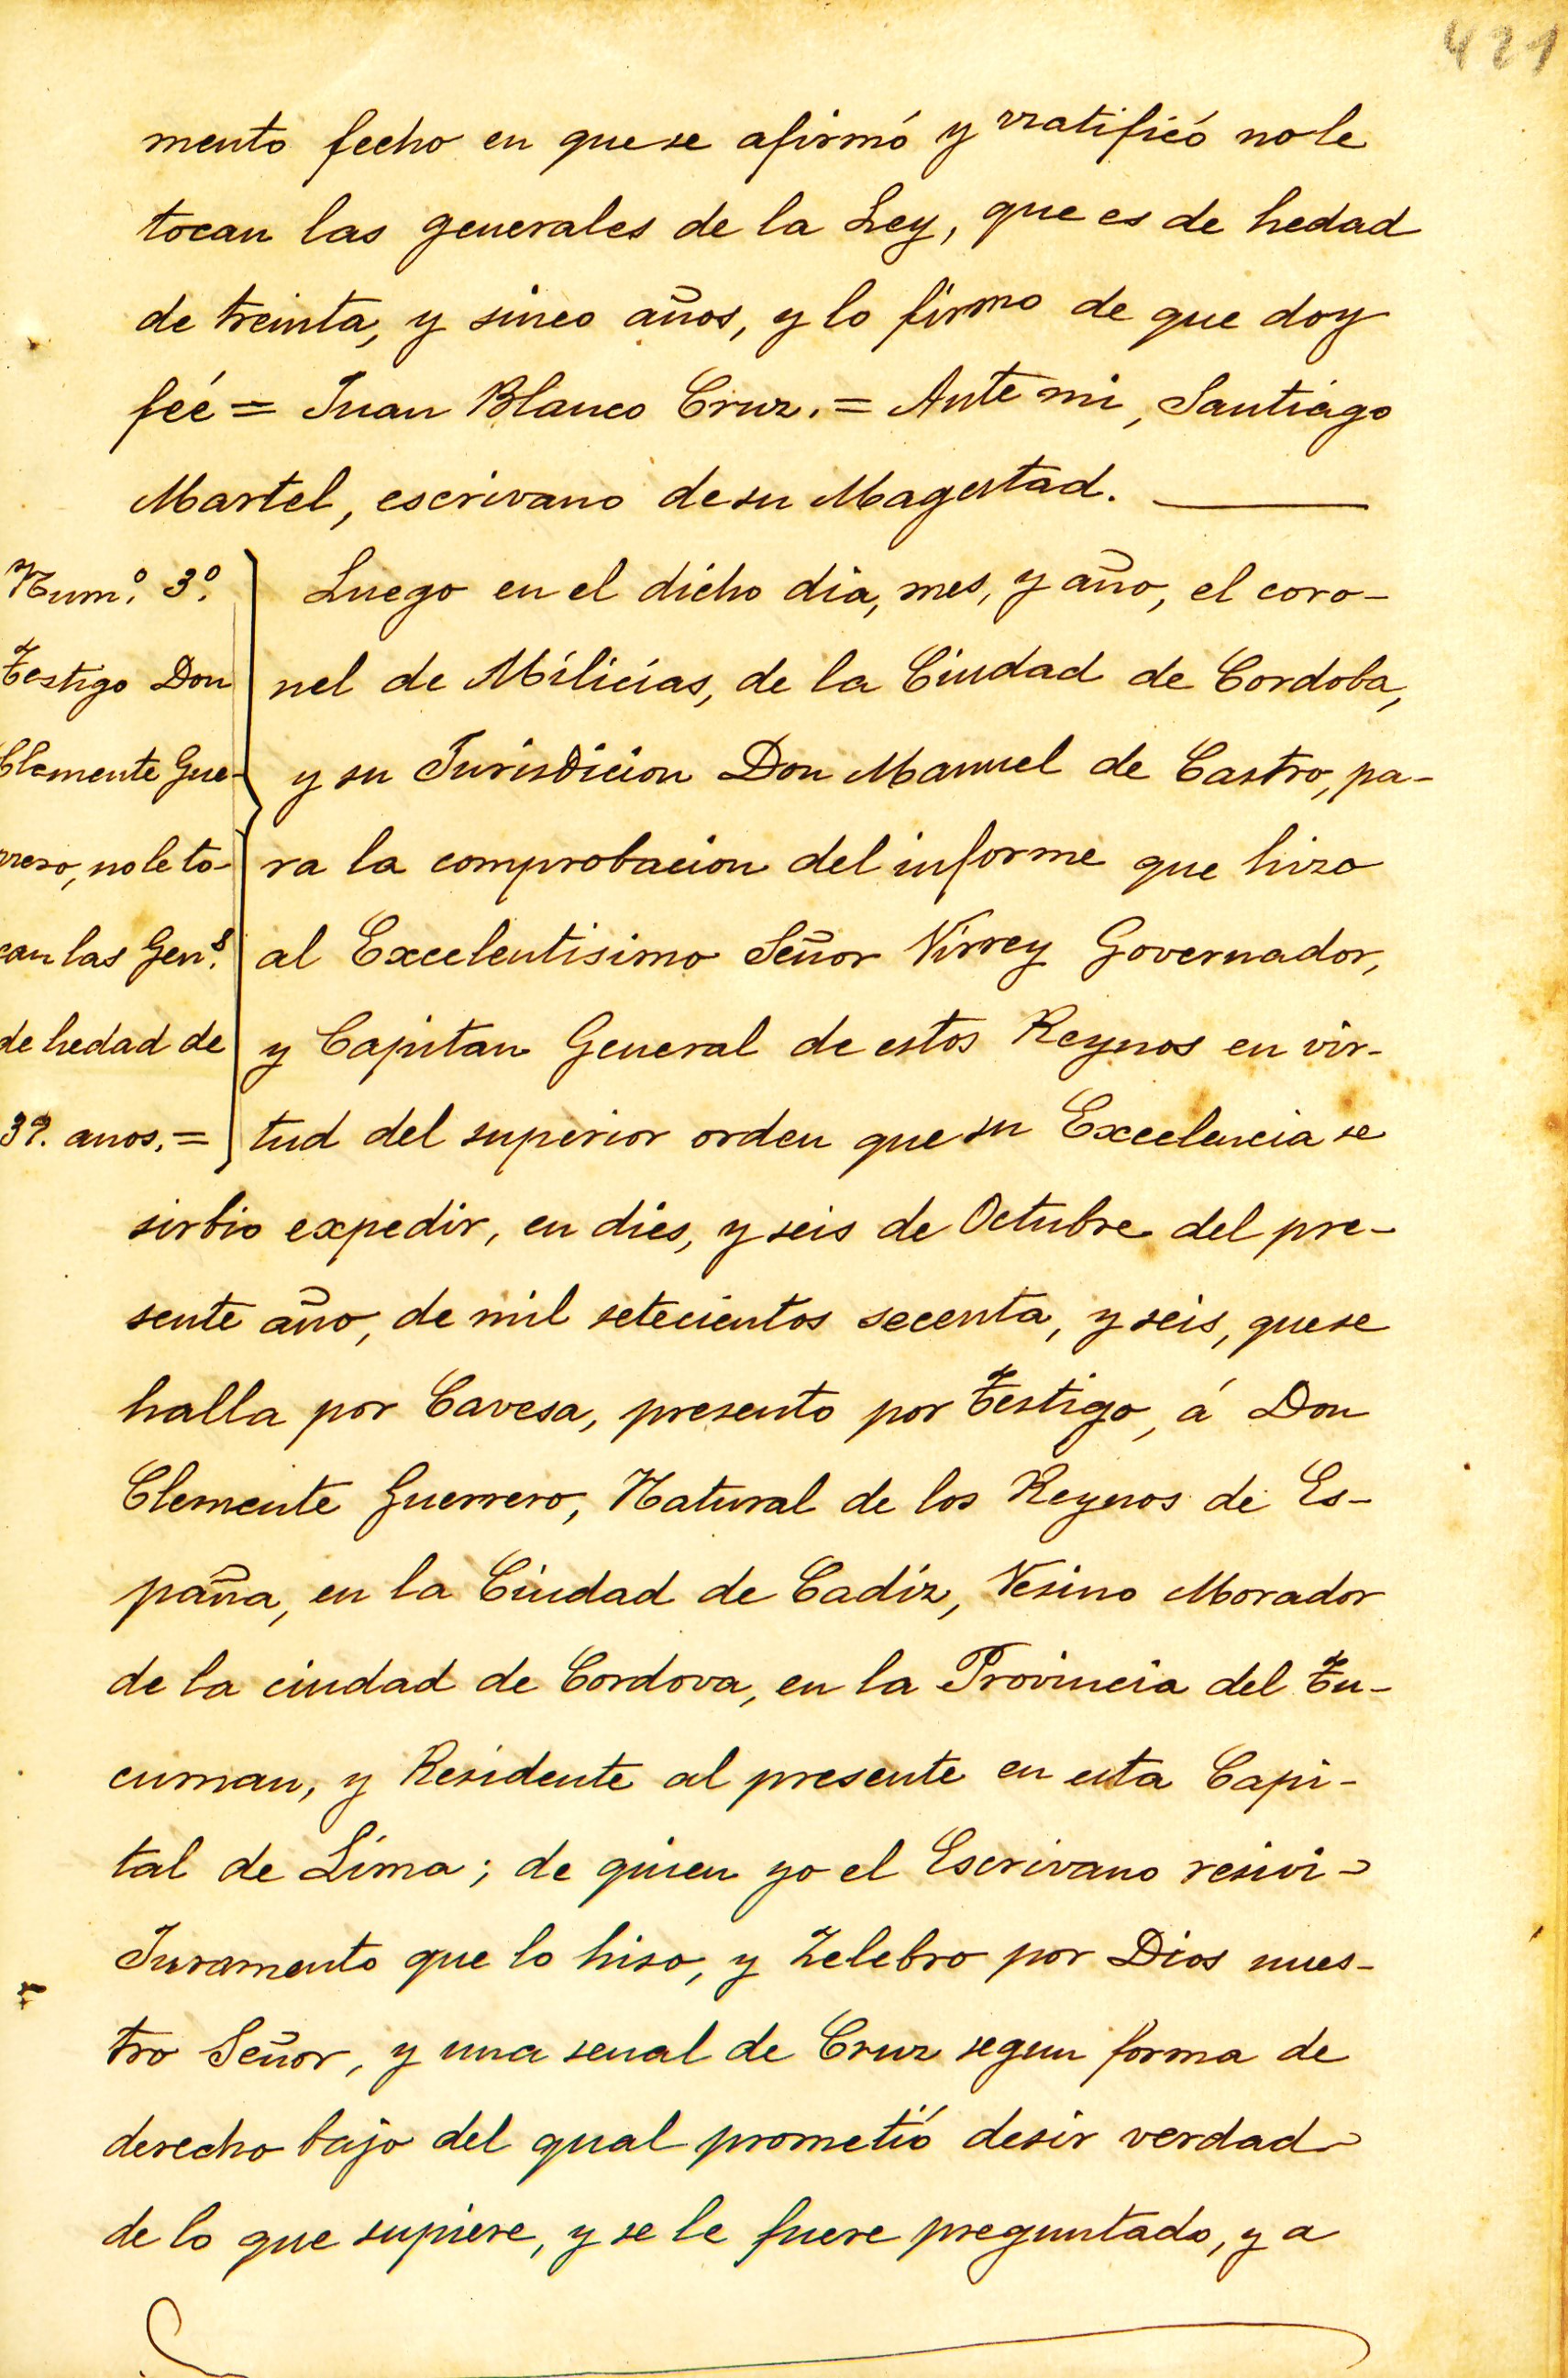 421
mento fecho en quese afirmó y rratificó nole
tocan las generales de la Ley, que es de hedad
de treinta, y sinco años, y lo firmo de que doy
feé = Juan Blanco Cruz. = Ante mi, Santiágo
Martel, escrivano desu Magestad.
Num.º 3º.
Testigo Don
Clemente Gue-
rrero, nole to-
can las Gen.s
de hedad de
anos. =
Luego en el dicho dia, mes, y año, el coro-
nel de Milicias, de la Ciudad de Cordoba,
y su Jurisdicion Don Manuel de Castro, pa-
ra la comprobacion del informe que hizo
al Excelentisimo Señor Virrey Governador,
y Capitan General de estos Reynos en vir-
tud del superior orden que su Excelencia se
sirbio expedir, en dies, y seis de Octubre del pre-
sente año, de mil setecientos secenta, y seis, quese
halla por Cavesa, presento por Testigo, á Don
Clemente Guerrero, Natural de los Reynos de Es-
paña, en la Ciudad de Cadiz, Vesino Morador
de la ciudad de Cordova, en la Provincia del Tu-
cuman, y Residente al presente en esta Capi-
tal de Lima; de quien yo el Escrivano resivi-
Juramento que lo hiso, y Zelebro por Dios nues-
tro Señor, y una senal de Cruz segun forma de
derecho bajo del qual prometió desir verdad
de lo que supiere, y se le fuere preguntado, y a